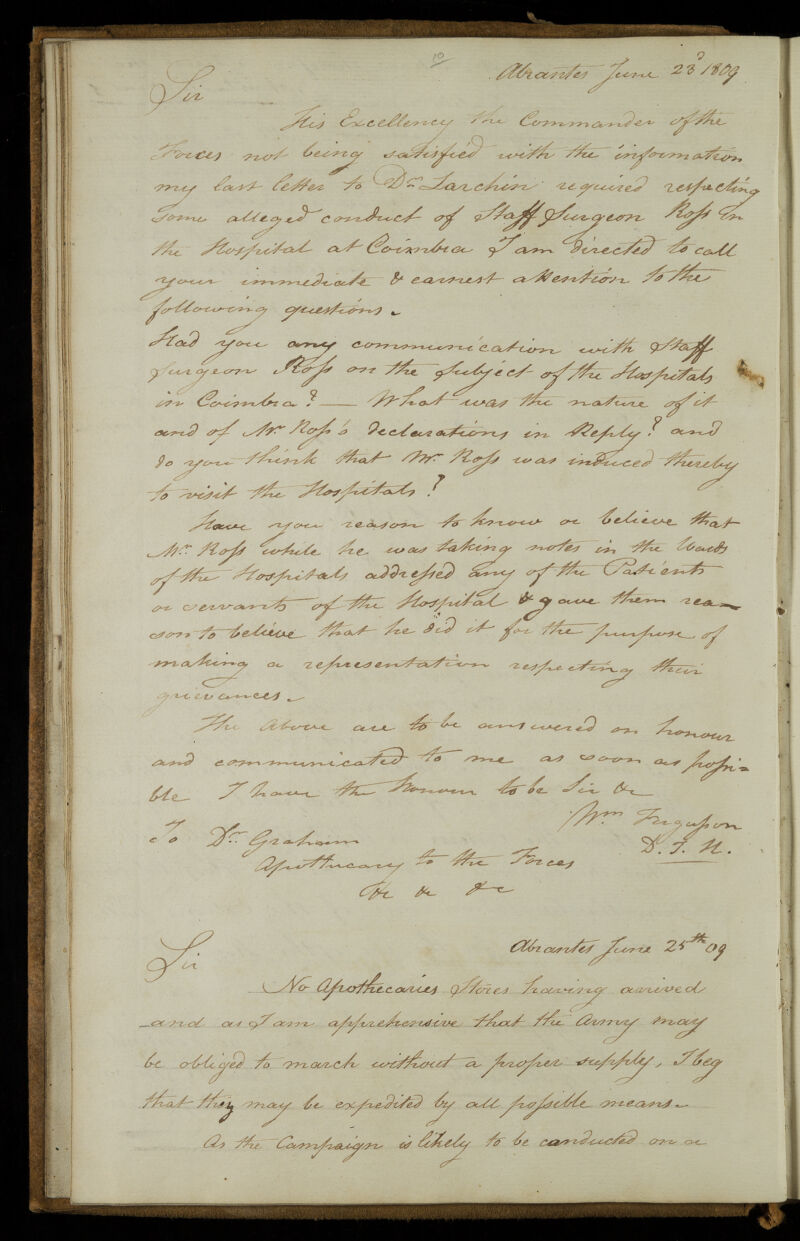 10
Abrantes June 23d 1809
Sir
His Excellency the Commander of the
Forces not being satisfied with the information
my last letter to Dr Larchin required respecting
some alleged conduct of Staff Surgeon Ross in
the Hospital at Coimbra I am directed to call
your immediate & earnest attention to the
following questions.
Had you any communication with Staff
Surgeon Ross on the Subject of the Hospitals
in Coimbra? — What was the nature of it
and of Mr Ross's declarations in Reply? and
do you think that Mr Ross was induced thereby
to visit the Hospitals?
Have you reason to know or believe that
Mr Ross while he was taking notes in the Wards
of the Hospitals addressed any of the Patients
or servants of the Hospital & gave them rea=
son to believe that he did it for the purpose of
making a representation respecting their
grievances.
The Above are to be answered on honour
and communicated to me as soon as possi=
ble I have the Honour to be Sir &c
Wm Fergusson
D. I. H.
To Dr Graham
Apothecary to the Forces
&c &c &c
Abrantes June 25th 09
Sir
No Apothecaries Stores having arrived
and as I am apprehensive that the Army may
be obliged to march without a proper supply, I beg
that they may be expedited by all possible means.
As the Campaign is likely to be conducted on a